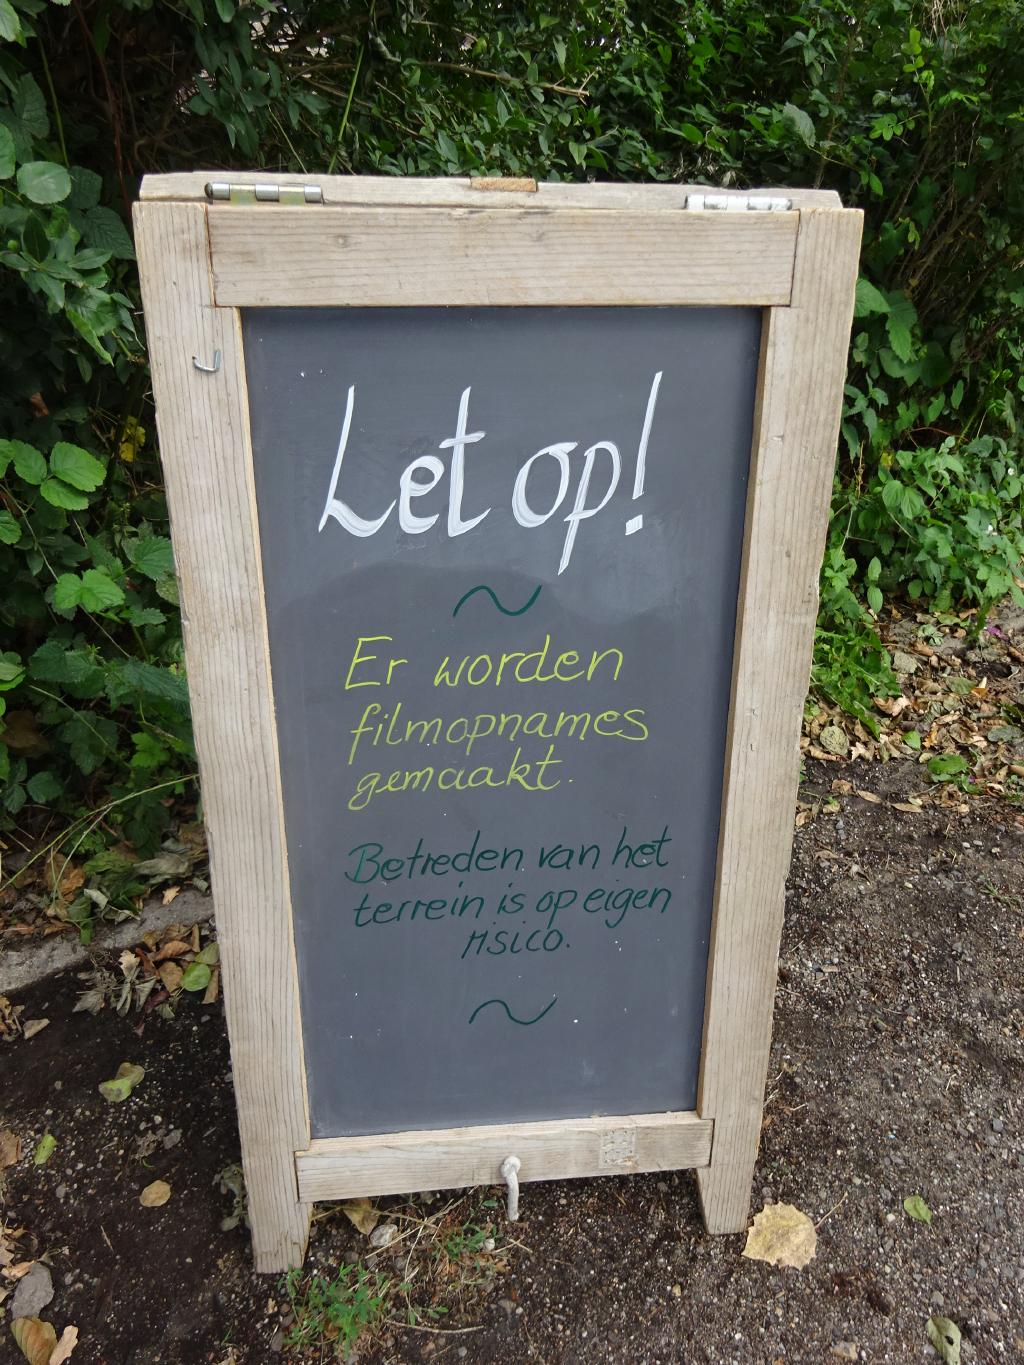 Let op!
Er worden
filmopnames
gemaakt.
Betreden van het
terrein is op eigen
risico.